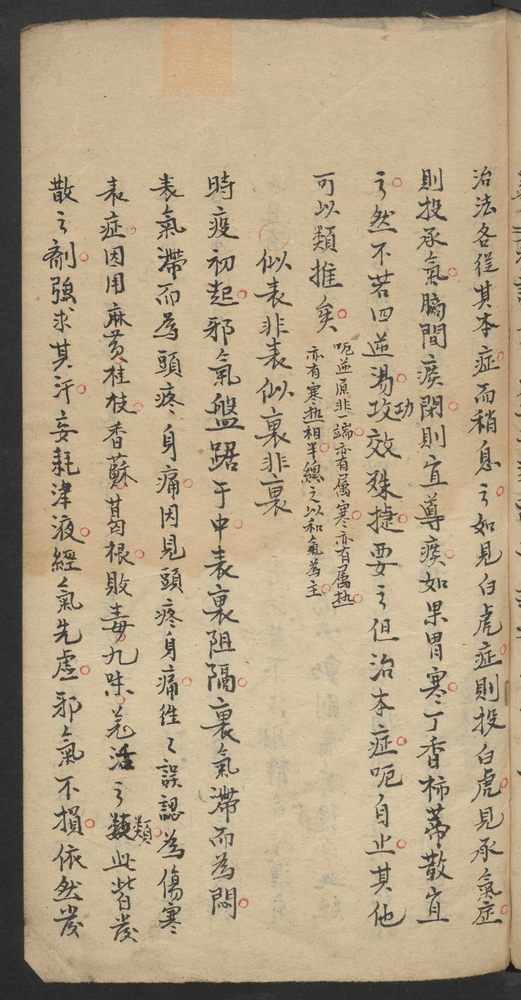 治法各從其本症而稍息之如見白虎症則投白虎見承氣症
則投承氣膈間痰閉則宜導痰如果胃寒丁香柿蒂散宜
之然不若四逆湯功效殊捷要之但治本症呃自止其他
可以類推矣
呃逆原非一端亦有属寒亦有属热
亦有寒热相半總之以和氣為主
似表非表似裏非裏
時疫初起邪氣盤踞于中表裏阻隔裏氣滯而為悶
表氣滯而為頭疼身痛因見頭疼身痛徃〻誤認為傷寒
表症因用麻黄桂枝香蘇葛根敗毒九味羌活之類此皆發
散之劑強求其汗妄耗津液經氣先虛邪氣不損依然發